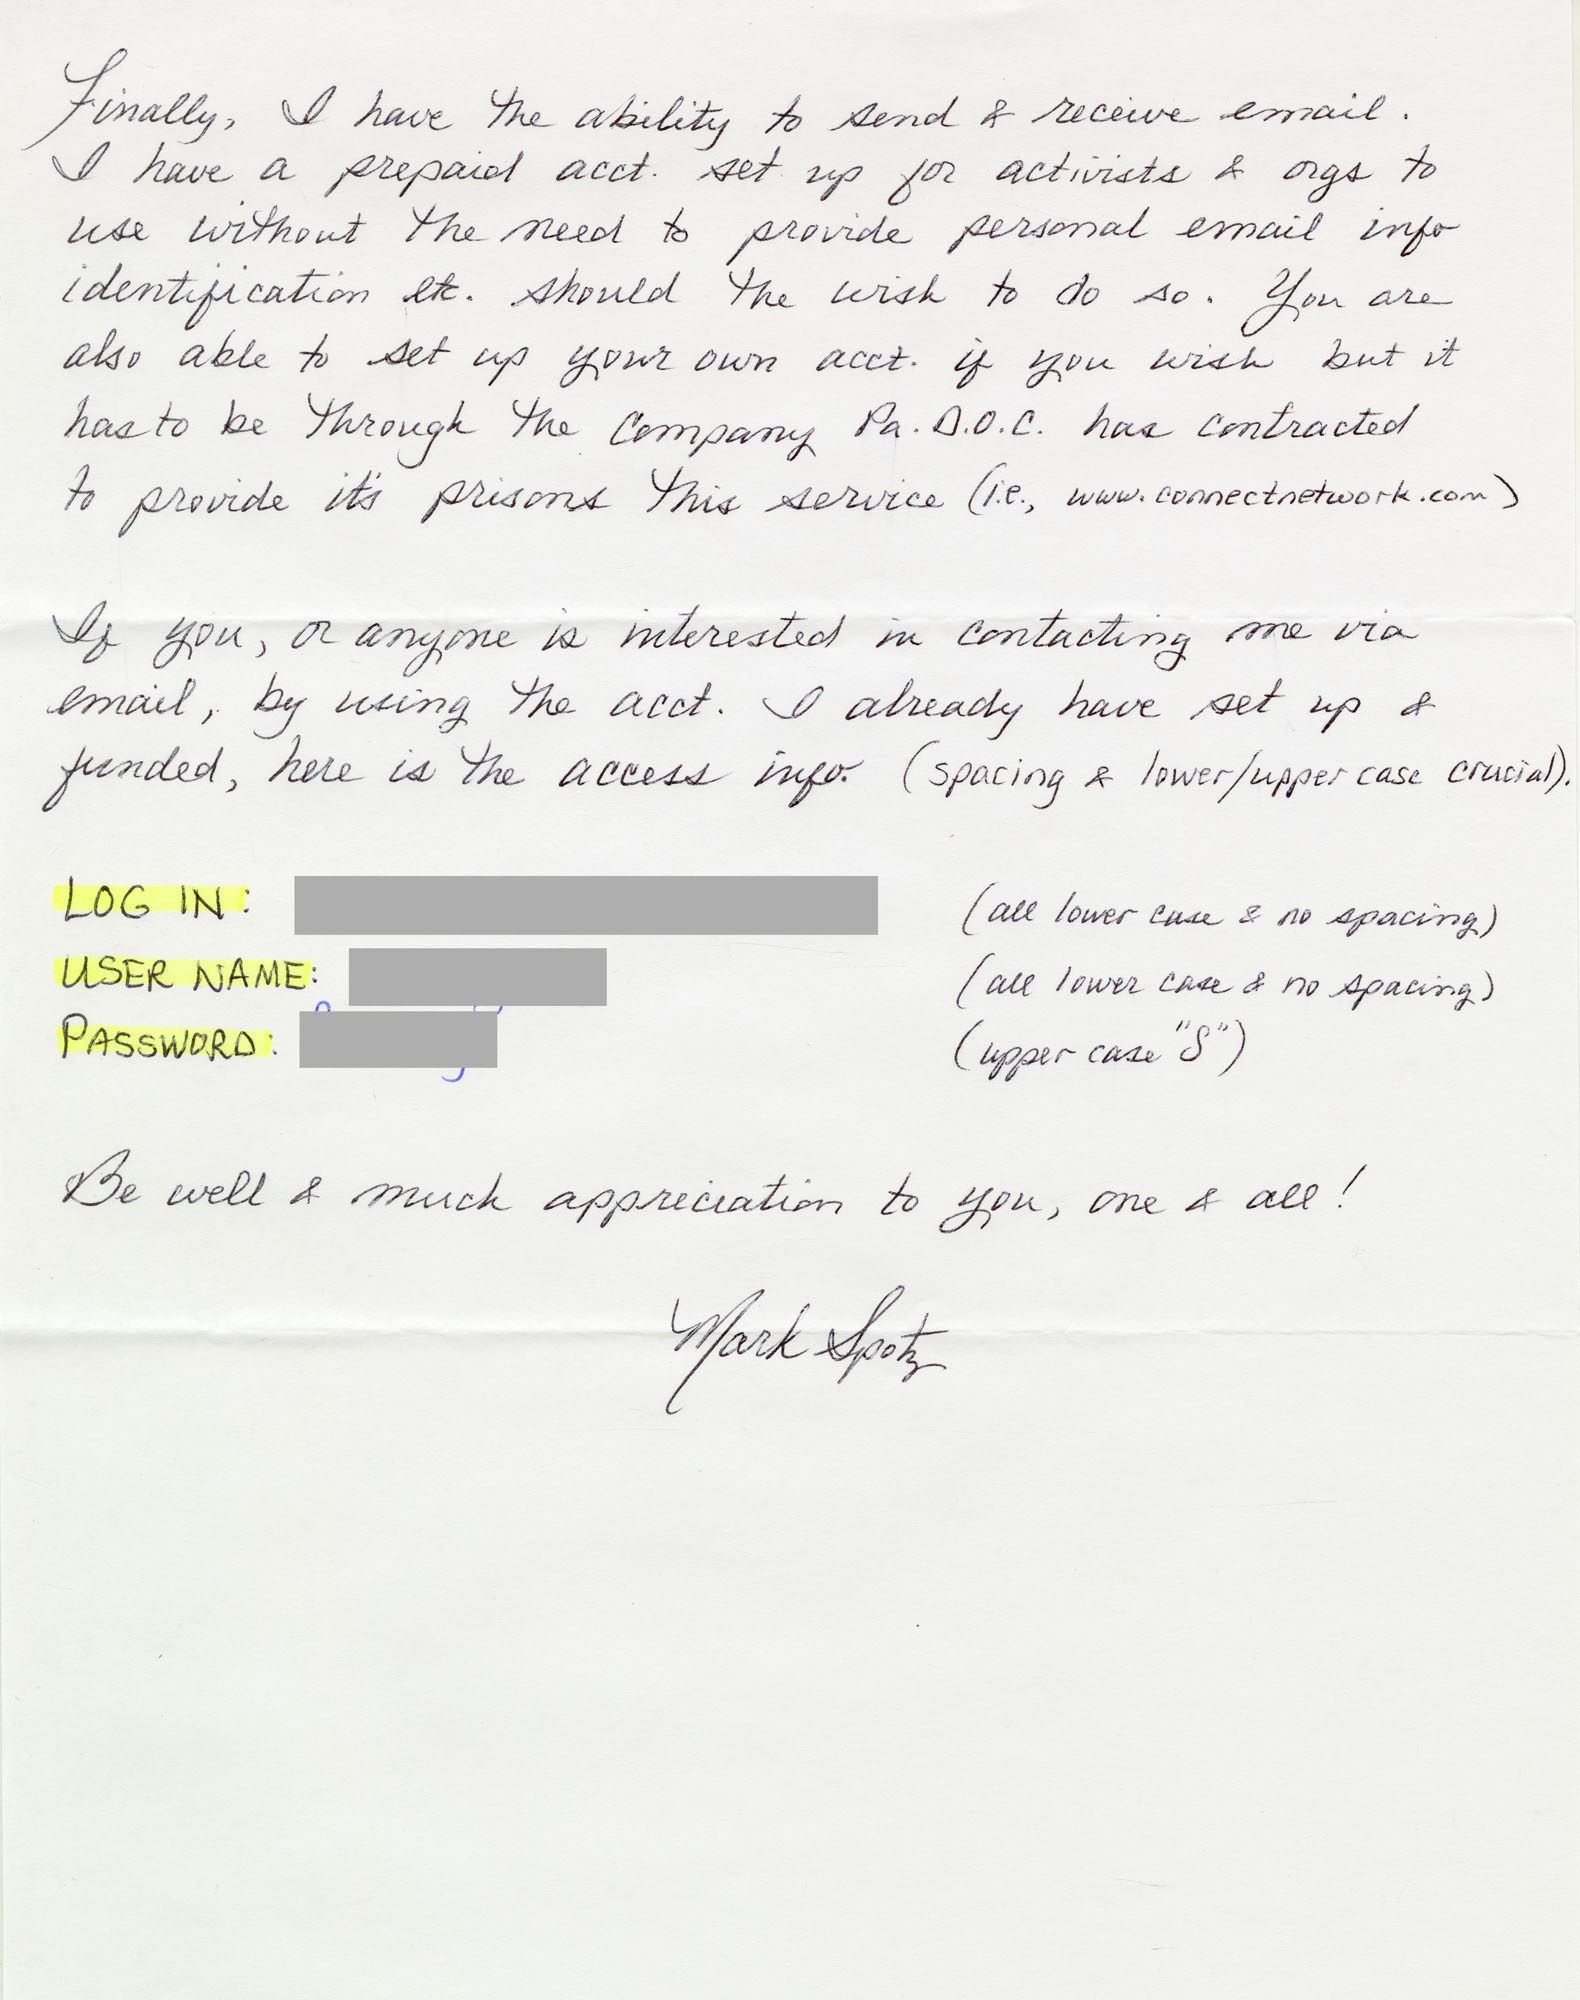 Finally, I have the ability to send & receive email.
I have a prepaid acct. set up for activists & orgs to
use without the need to provide personal email info
identification etc. should the wish to do so. You are
also able to set up your own acct. if you wish but it
has to be through the company Pa. D.O.C. has contracted
to provide it's prisons this service (i.e., www.connectnetwork.com)
If you, or anyone is interested in contacting me via
email, by using the acct. I already have set up &
funded, here is the access info. (spacing & lower/upper case crucial).
LOG IN: (all lower case & no spacing)
USER NAME: (all lower case & no spacing)
PASSWORD: (upper case "S")
Be well & much appreciation to you, one & all!
Mark Spotz